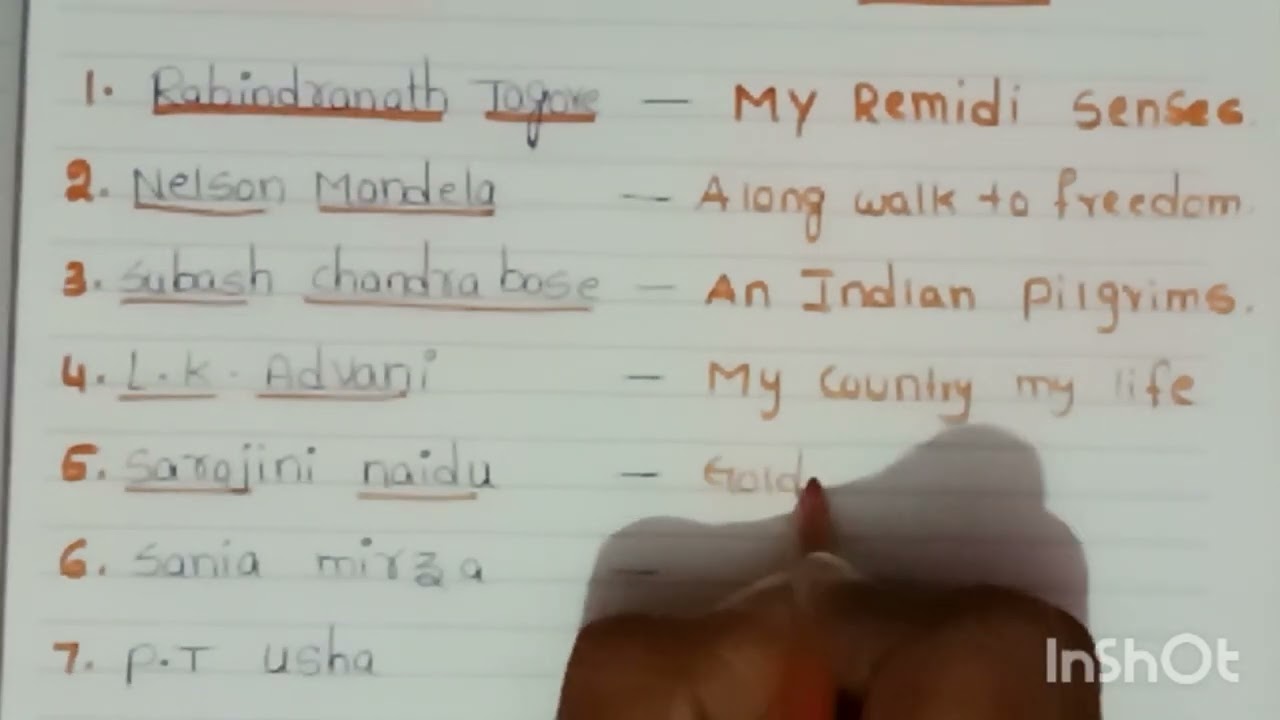 1. Rabindranath Tagore — My Remidi senses.
2. Nelson Mandela — A long walk to freedom.
3. Subash chandra bose — An Indian pilgrims.
4. L.K. Advani — My country my life
5. Sarojini naidu — Gold
6. Sania mirza —
7. P.T usha
InShOt